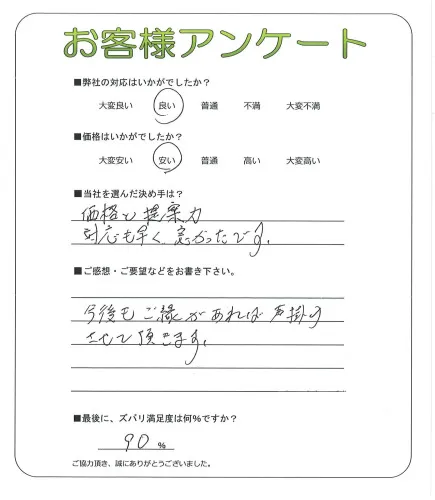 お客様アンケート
■弊社の対応はいかがでしたか？
大変良い 良い 普通 不満 大変不満
■価格はいかがでしたか？
大変安い 安い 普通 高い 大変高い
■当社を選んだ決め手は？
価格と提案力
対応も早く 良かったです。
■ご感想・ご要望などをお書き下さい。
今後もご縁があれば声掛け
させて頂きます。
■最後に、ズバリ満足度は何%ですか？
90 %
ご協力頂き、誠にありがとうございました。